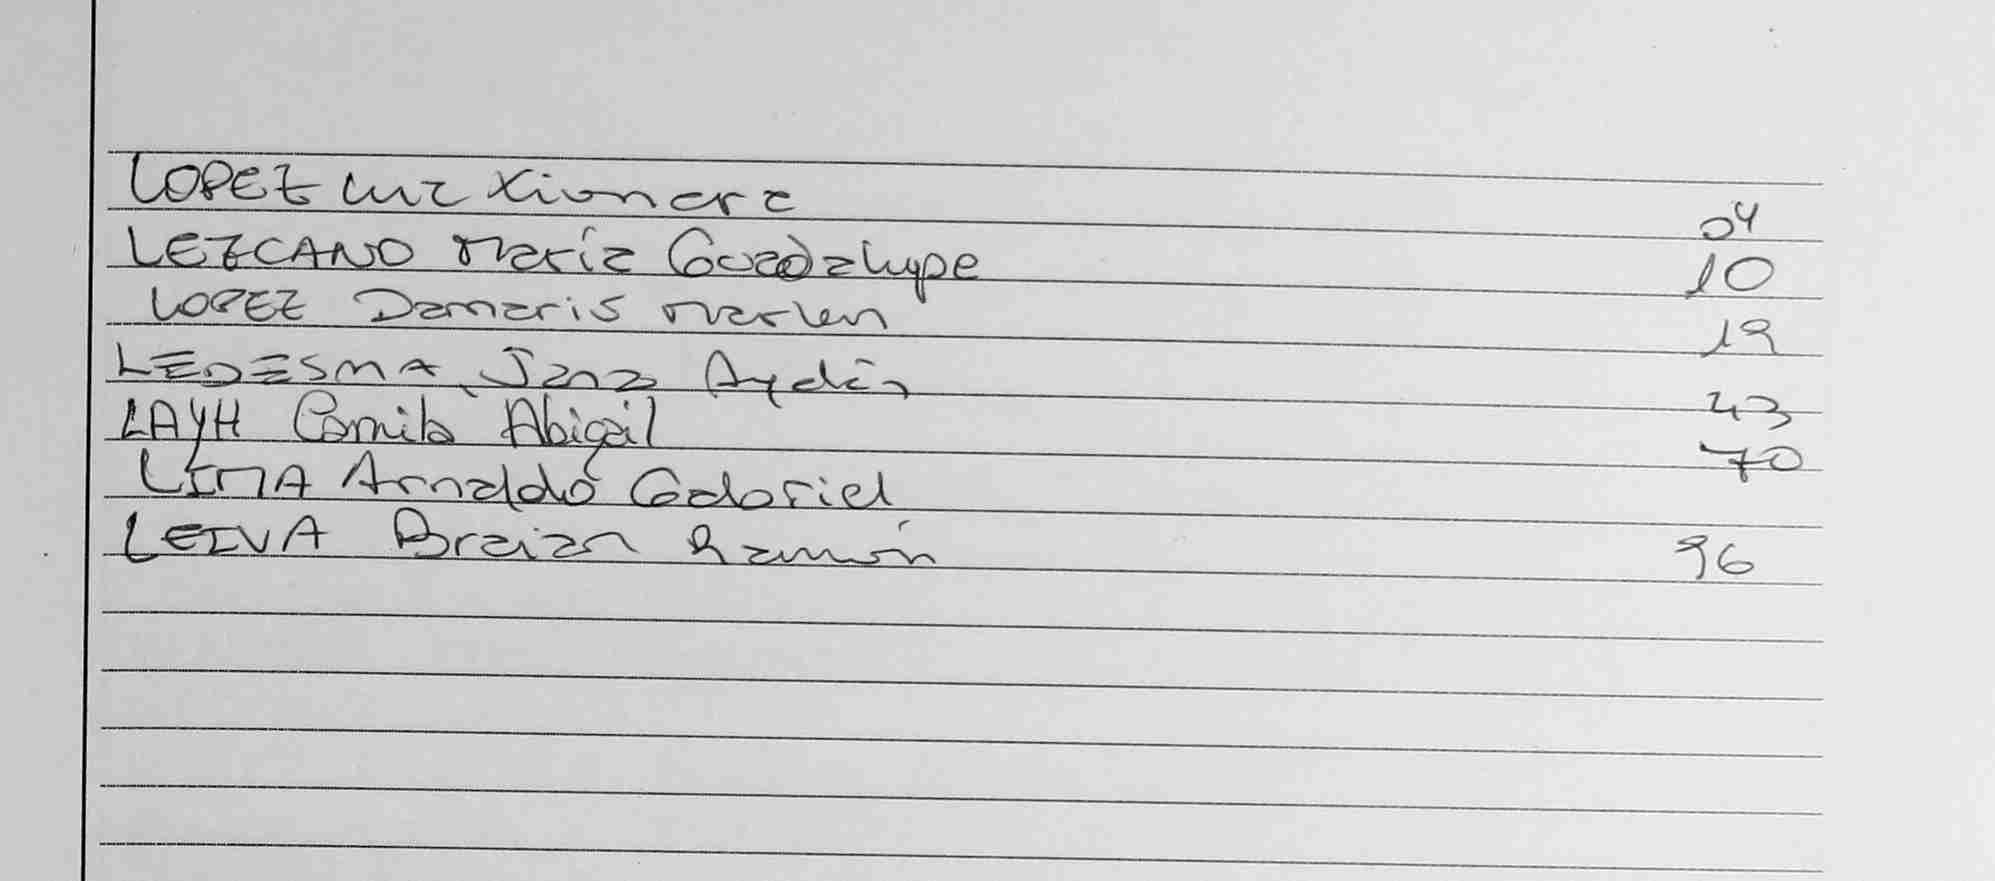 LOPEZ Luz Xiomara 04
LEZCANO María Guadalupe 10
LOPEZ Damaris Marlen 19
LEDESMA Jana Aydén 43
LAYH Camila Abigail 70
LIMA Arnaldo Gabriel
LEIVA Braian Ramón 96